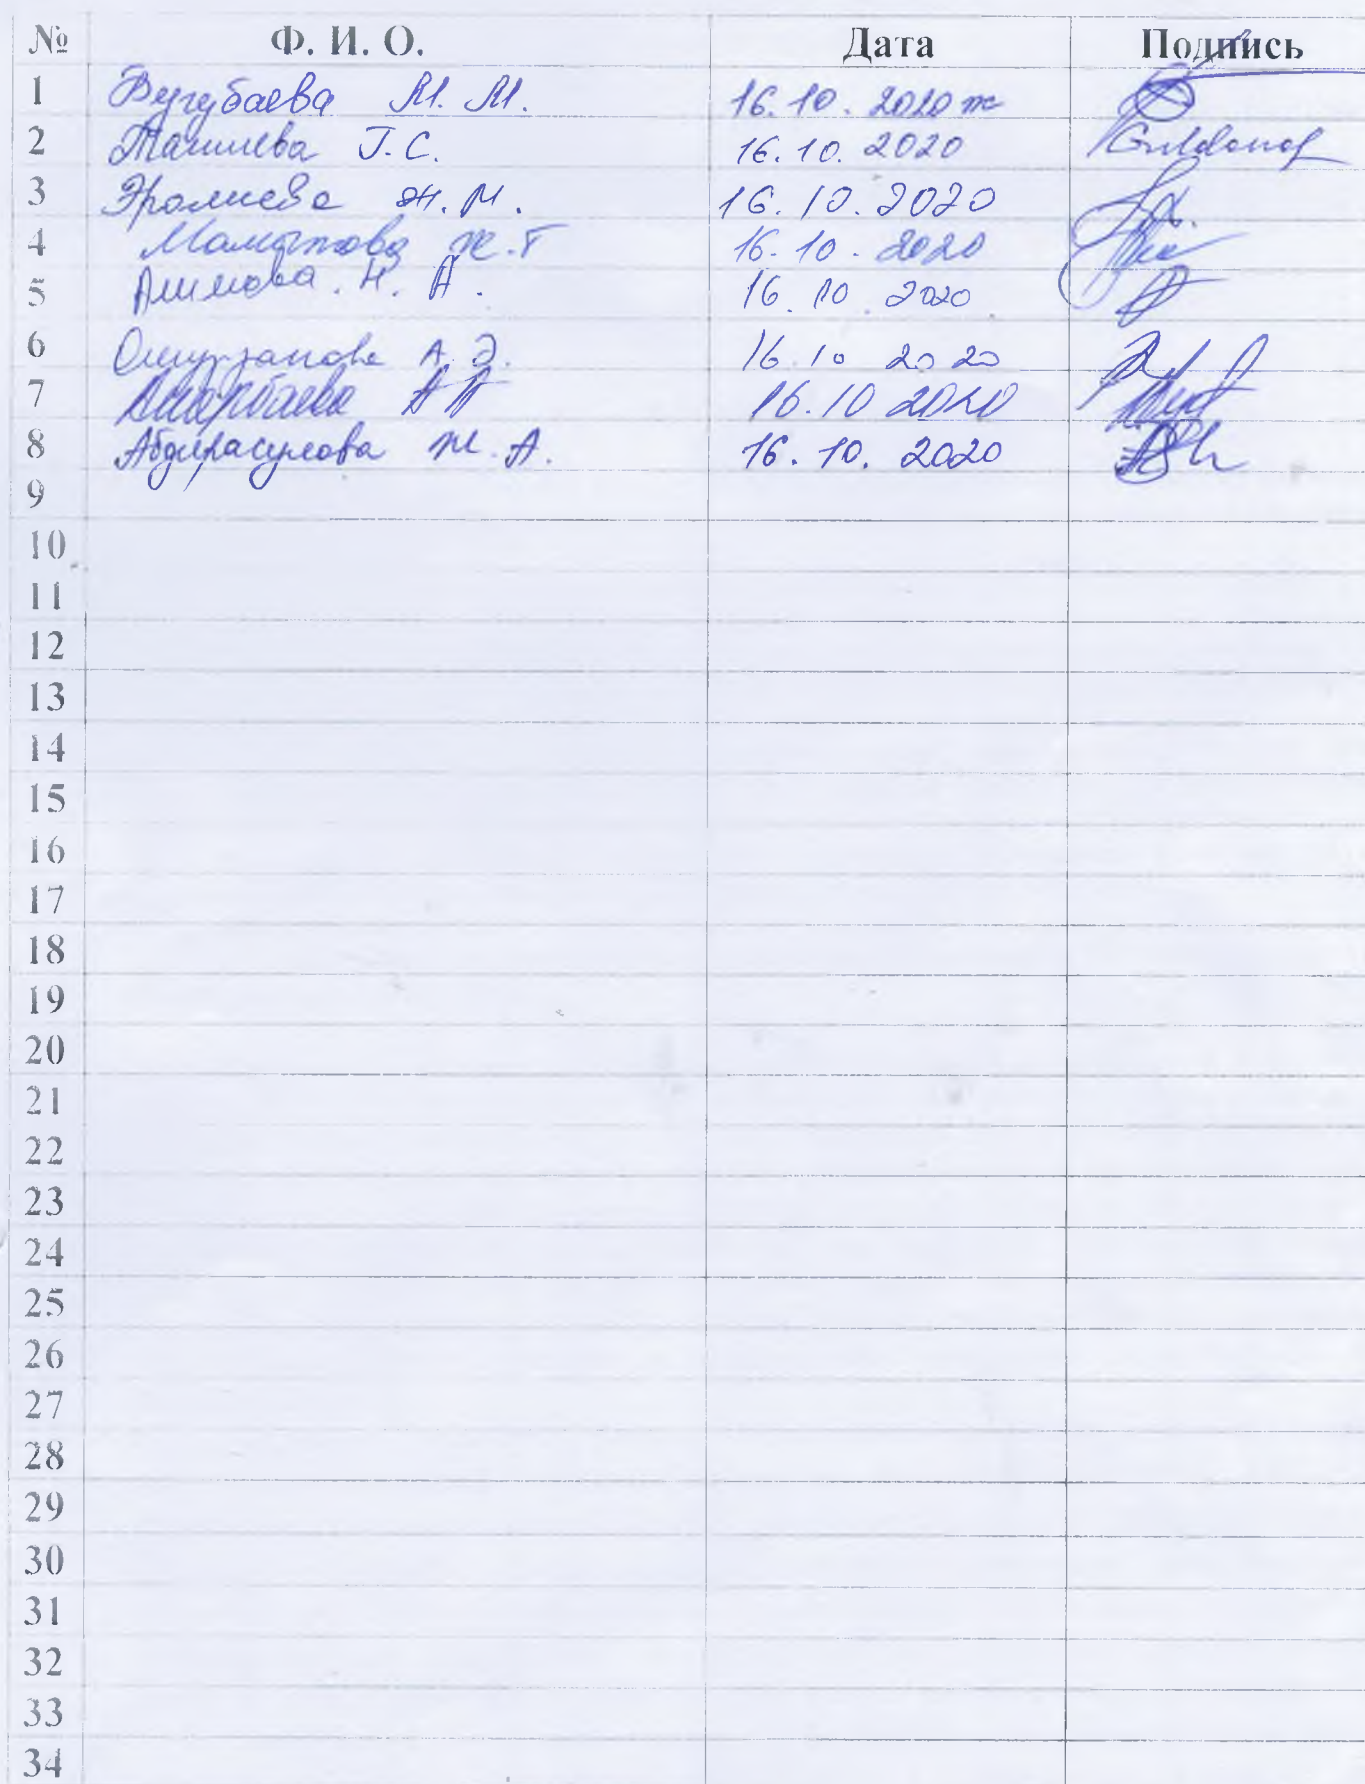 № Ф. И. О. Дата Подпись
1 М. М. 16. 10. 2020 ж
2 Ташиева Г. С. 16. 10. 2020
3 Эралиева Ж. М. 16. 10. 2020
4 Маматова Ж. Т 16. 10. 2020
5 Алимова. Н. А. 16. 10. 2020
6 А. Э. 16. 10 2020
7 16. 10 2020
8 Абдирасулова Ж. А. 16. 10. 2020
9
10
11
12
13
14
15
16
17
18
19
20
21
22
23
24
25
26
27
28
29
30
31
32
33
34